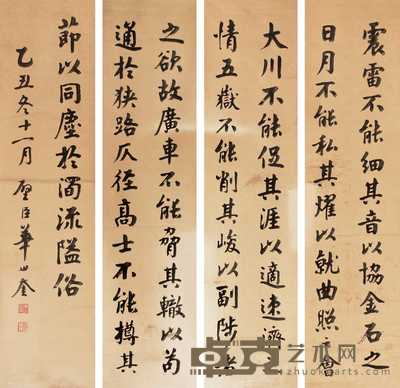 震雷不能細其音以協金石之
日月不能私其耀以就曲照之會
大川不能促其涯以適速濟
情五嶽不能削其峻以副陟者
之欲故廣車不能脅其轍以苟
通於狹路仄徑高士不能撙其
節以同塵於濁流隘俗
乙丑冬十一月 璧臣華世奎
艺术网
zhuokearts.com